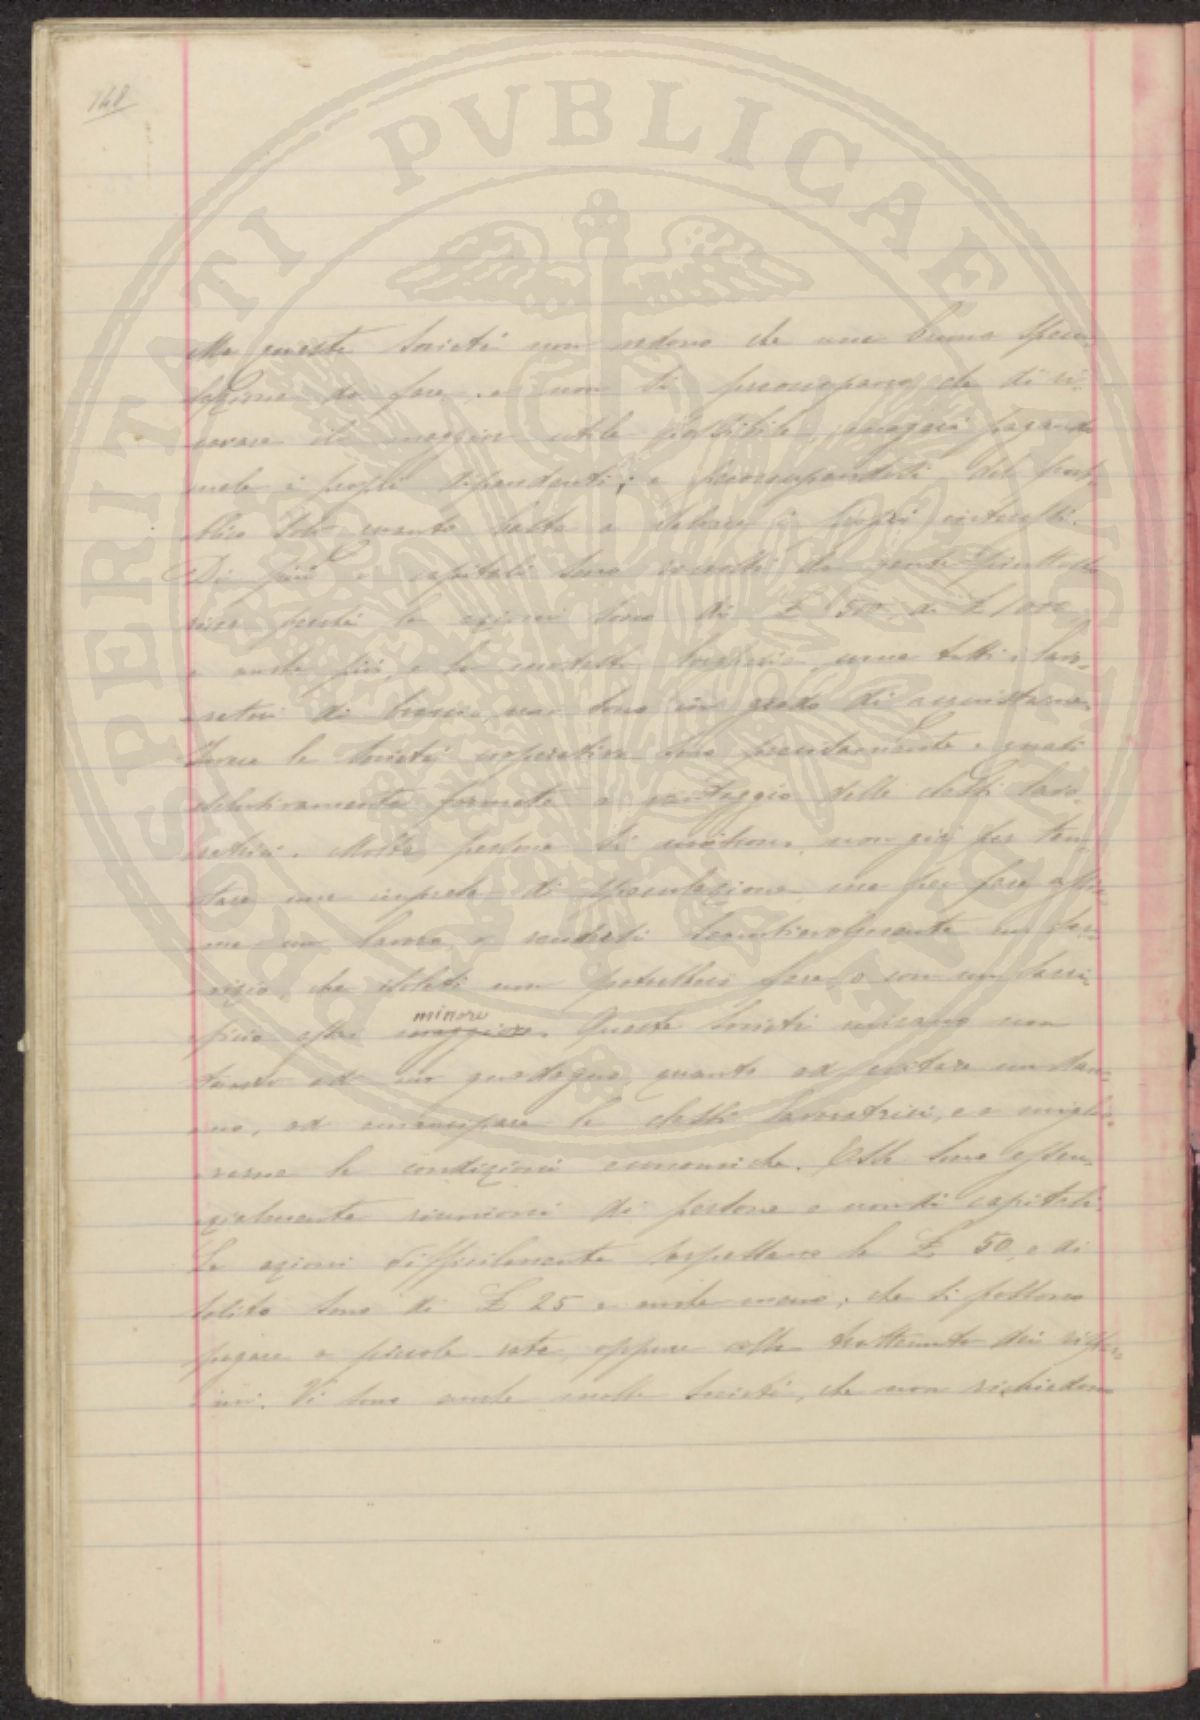 148
PROSPERITATI PUBLICAE AUGENDAE
Ma queste Società non vedono che una buona specu-
lazione da fare, e non si preoccupano che di ri-
cavare il maggior utile possibile, magari pagando
male i propri dipendenti; e preoccupandosi del pub-
blico solo quanto basta a i propri interessi.
Di più i capitali sono raccolti da gente piuttosto
ricca perché le azioni sono di £ 500, di £ 1000
e anche più, e le come tutti i lavo-
ratori di non sono in grado di acquistarne.
Invece le Società cooperative sono e quasi
esclusivamente formate a vantaggio delle classi lavo-
ratrici. Molte persone si uniscono, non già per ten-
tare una impresa di speculazione, ma per fare assie-
me un lavoro, o rendersi scambievolmente un ser-
vizio, che isolati non potrebbero fare, o con un sacri-
ficio assai maggiore minore. Queste Società mirano non
tanto ad un guadagno, quanto ad evitare un dan-
no, ad emancipare le classi lavoratrici, e a miglio-
rarne le condizioni economiche. Esse sono essen-
zialmente riunioni di persone e non di capitali.
Le azioni difficilmente sorpassano le £ 50, e di
solito sono di £ 25 e anche meno, che si possono
pagare a piccole rate, oppure colla trattenuta dei
. Vi sono anche molte Società, che non richiedono